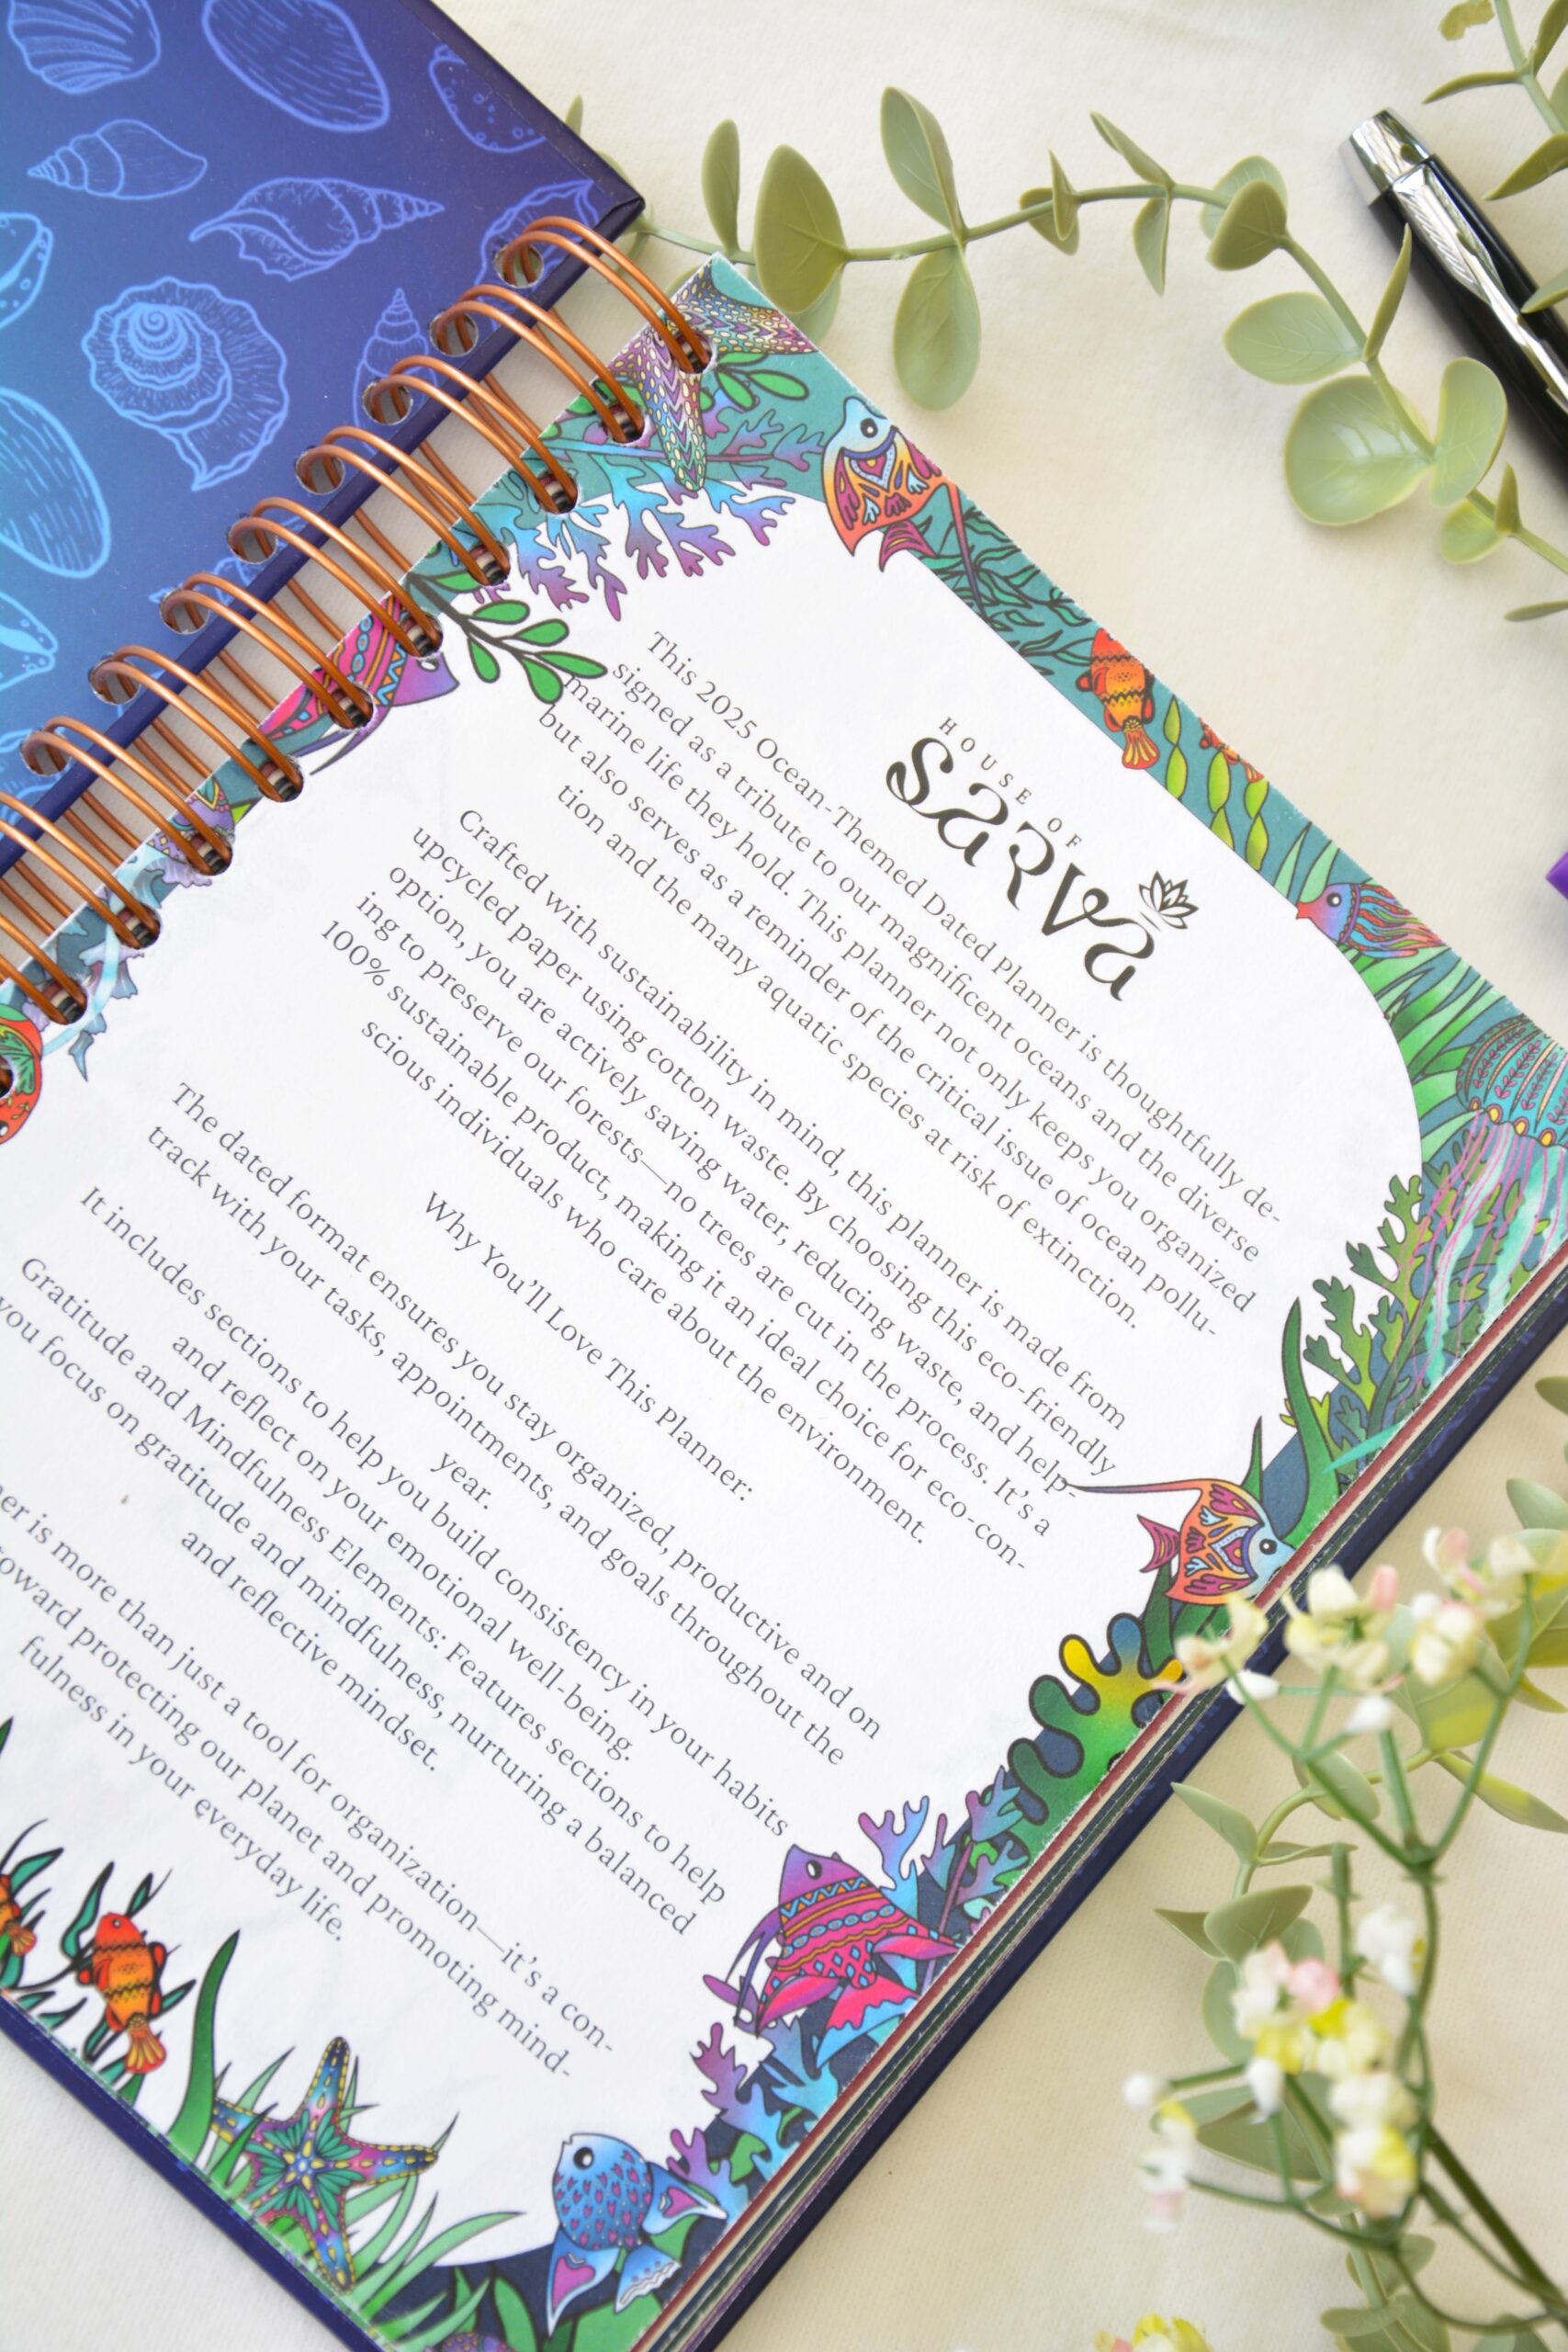 HOUSE OF
sarva
This 2025 Ocean-Themed Dated Planner is thoughtfully de-
signed as a tribute to our magnificent oceans and the diverse
marine life they hold. This planner not only keeps you organized
but also serves as a reminder of the critical issue of ocean pollu-
tion and the many aquatic species at risk of extinction.
Crafted with sustainability in mind, this planner is made from
upcycled paper using cotton waste. By choosing this eco-friendly
option, you are actively saving water, reducing waste, and help-
ing to preserve our forests—no trees are cut in the process. It's a
100% sustainable product, making it an ideal choice for eco-con-
scious individuals who care about the environment.
Why You'll Love This Planner:
The dated format ensures you stay organized, productive and on
track with your tasks, appointments, and goals throughout the
year.
It includes sections to help you build consistency in your habits
and reflect on your emotional well-being.
Gratitude and Mindfulness Elements: Features sections to help
you focus on gratitude and mindfulness, nurturing a balanced
and reflective mindset.
is more than just a tool for organization—it's a con-
toward protecting our planet and promoting mind-
fulness in your everyday life.